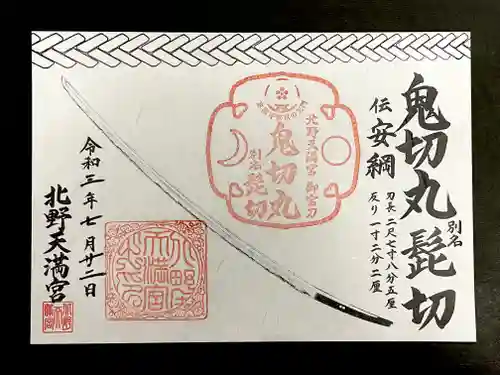 鬼切丸 別名 髭切
伝 安綱
刃長 二尺七寸八分五厘
反り 一寸二分二厘
北野天満宮 御宝刀
鬼切丸
別名 髭切
令和三年七月廿二日
北野天満宮